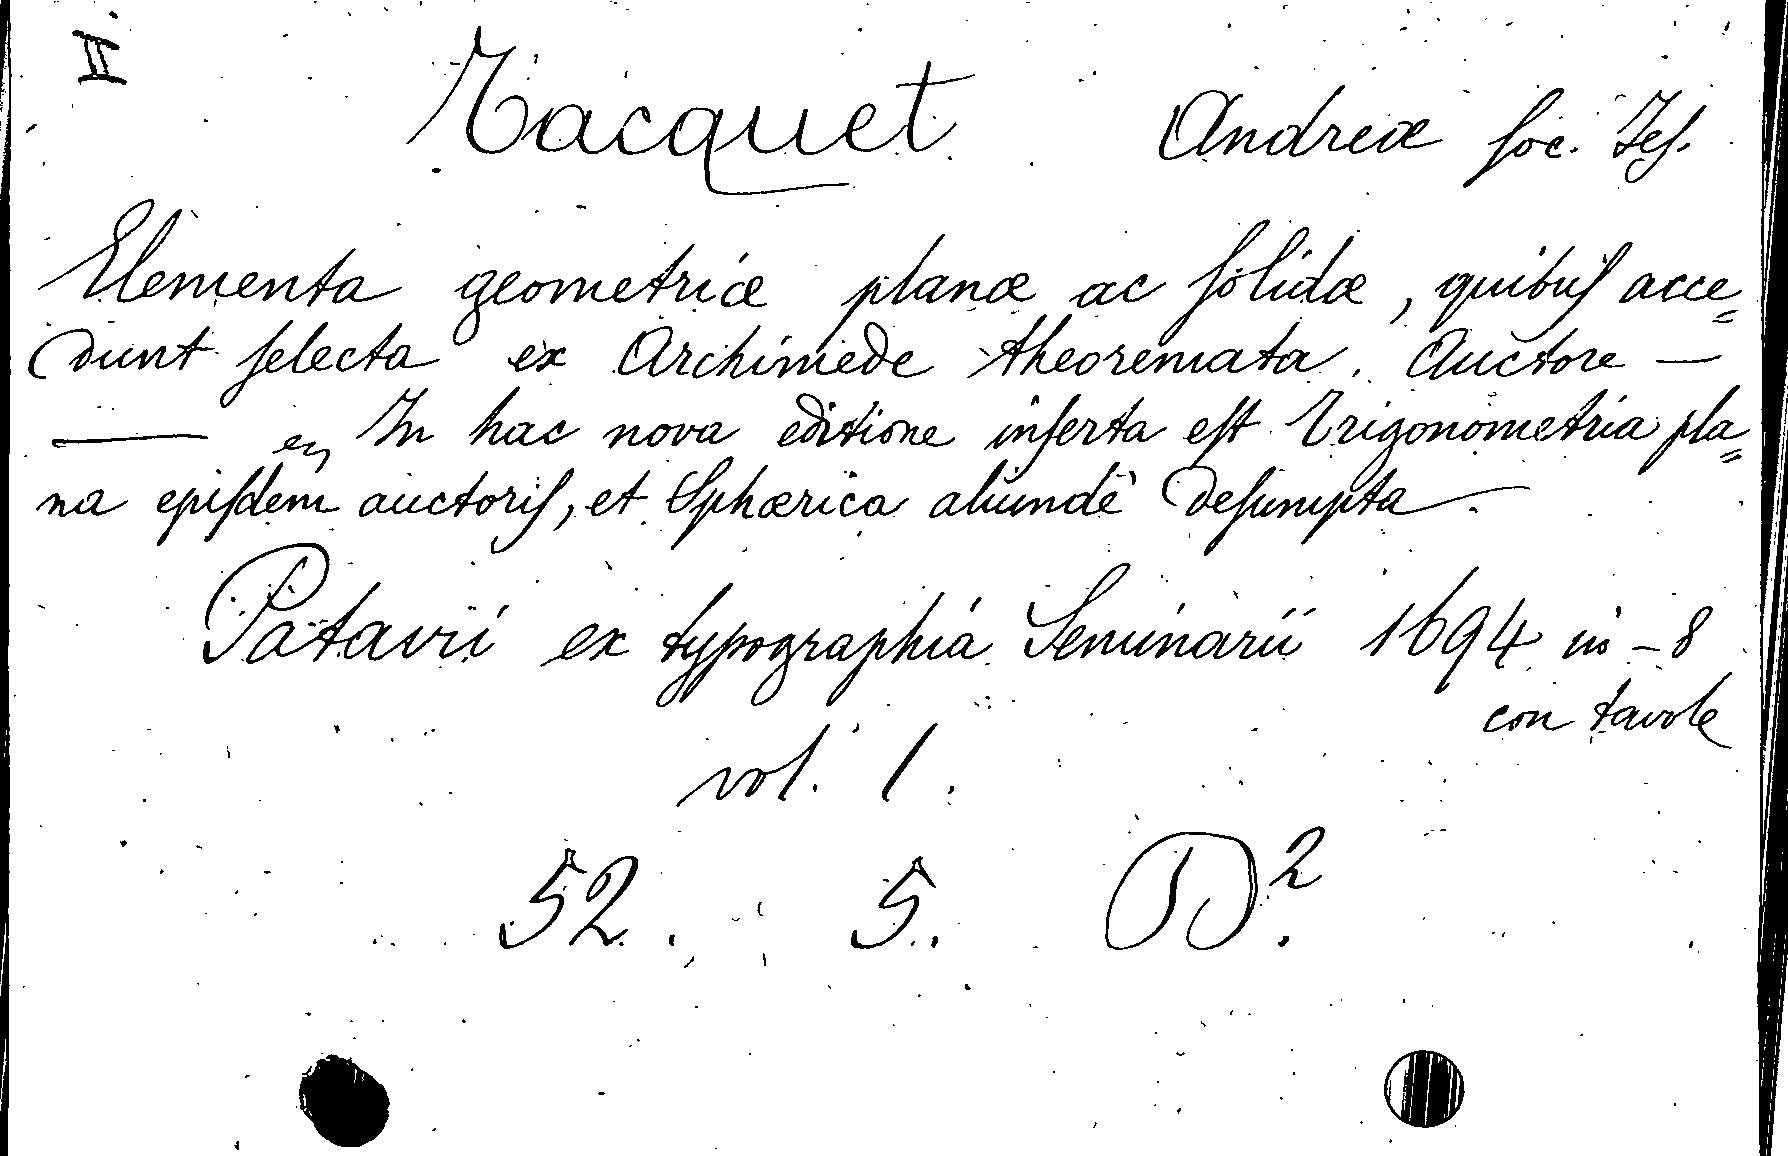 II
Tacquet Andreæ Soc. Jes.
Elementa geometriæ planæ ac solidæ, quibus acce=
dunt selecta ex Archimede theoremata. Auctore —
— In hac nova editione inserta est Trigonometria pla=
na ejusdem auctoris, et Sphærica aliundè desumpta.
Patavii ex typographia Seminarii 1694 in-8
con tavole
vol. 1.
52. 5. D².